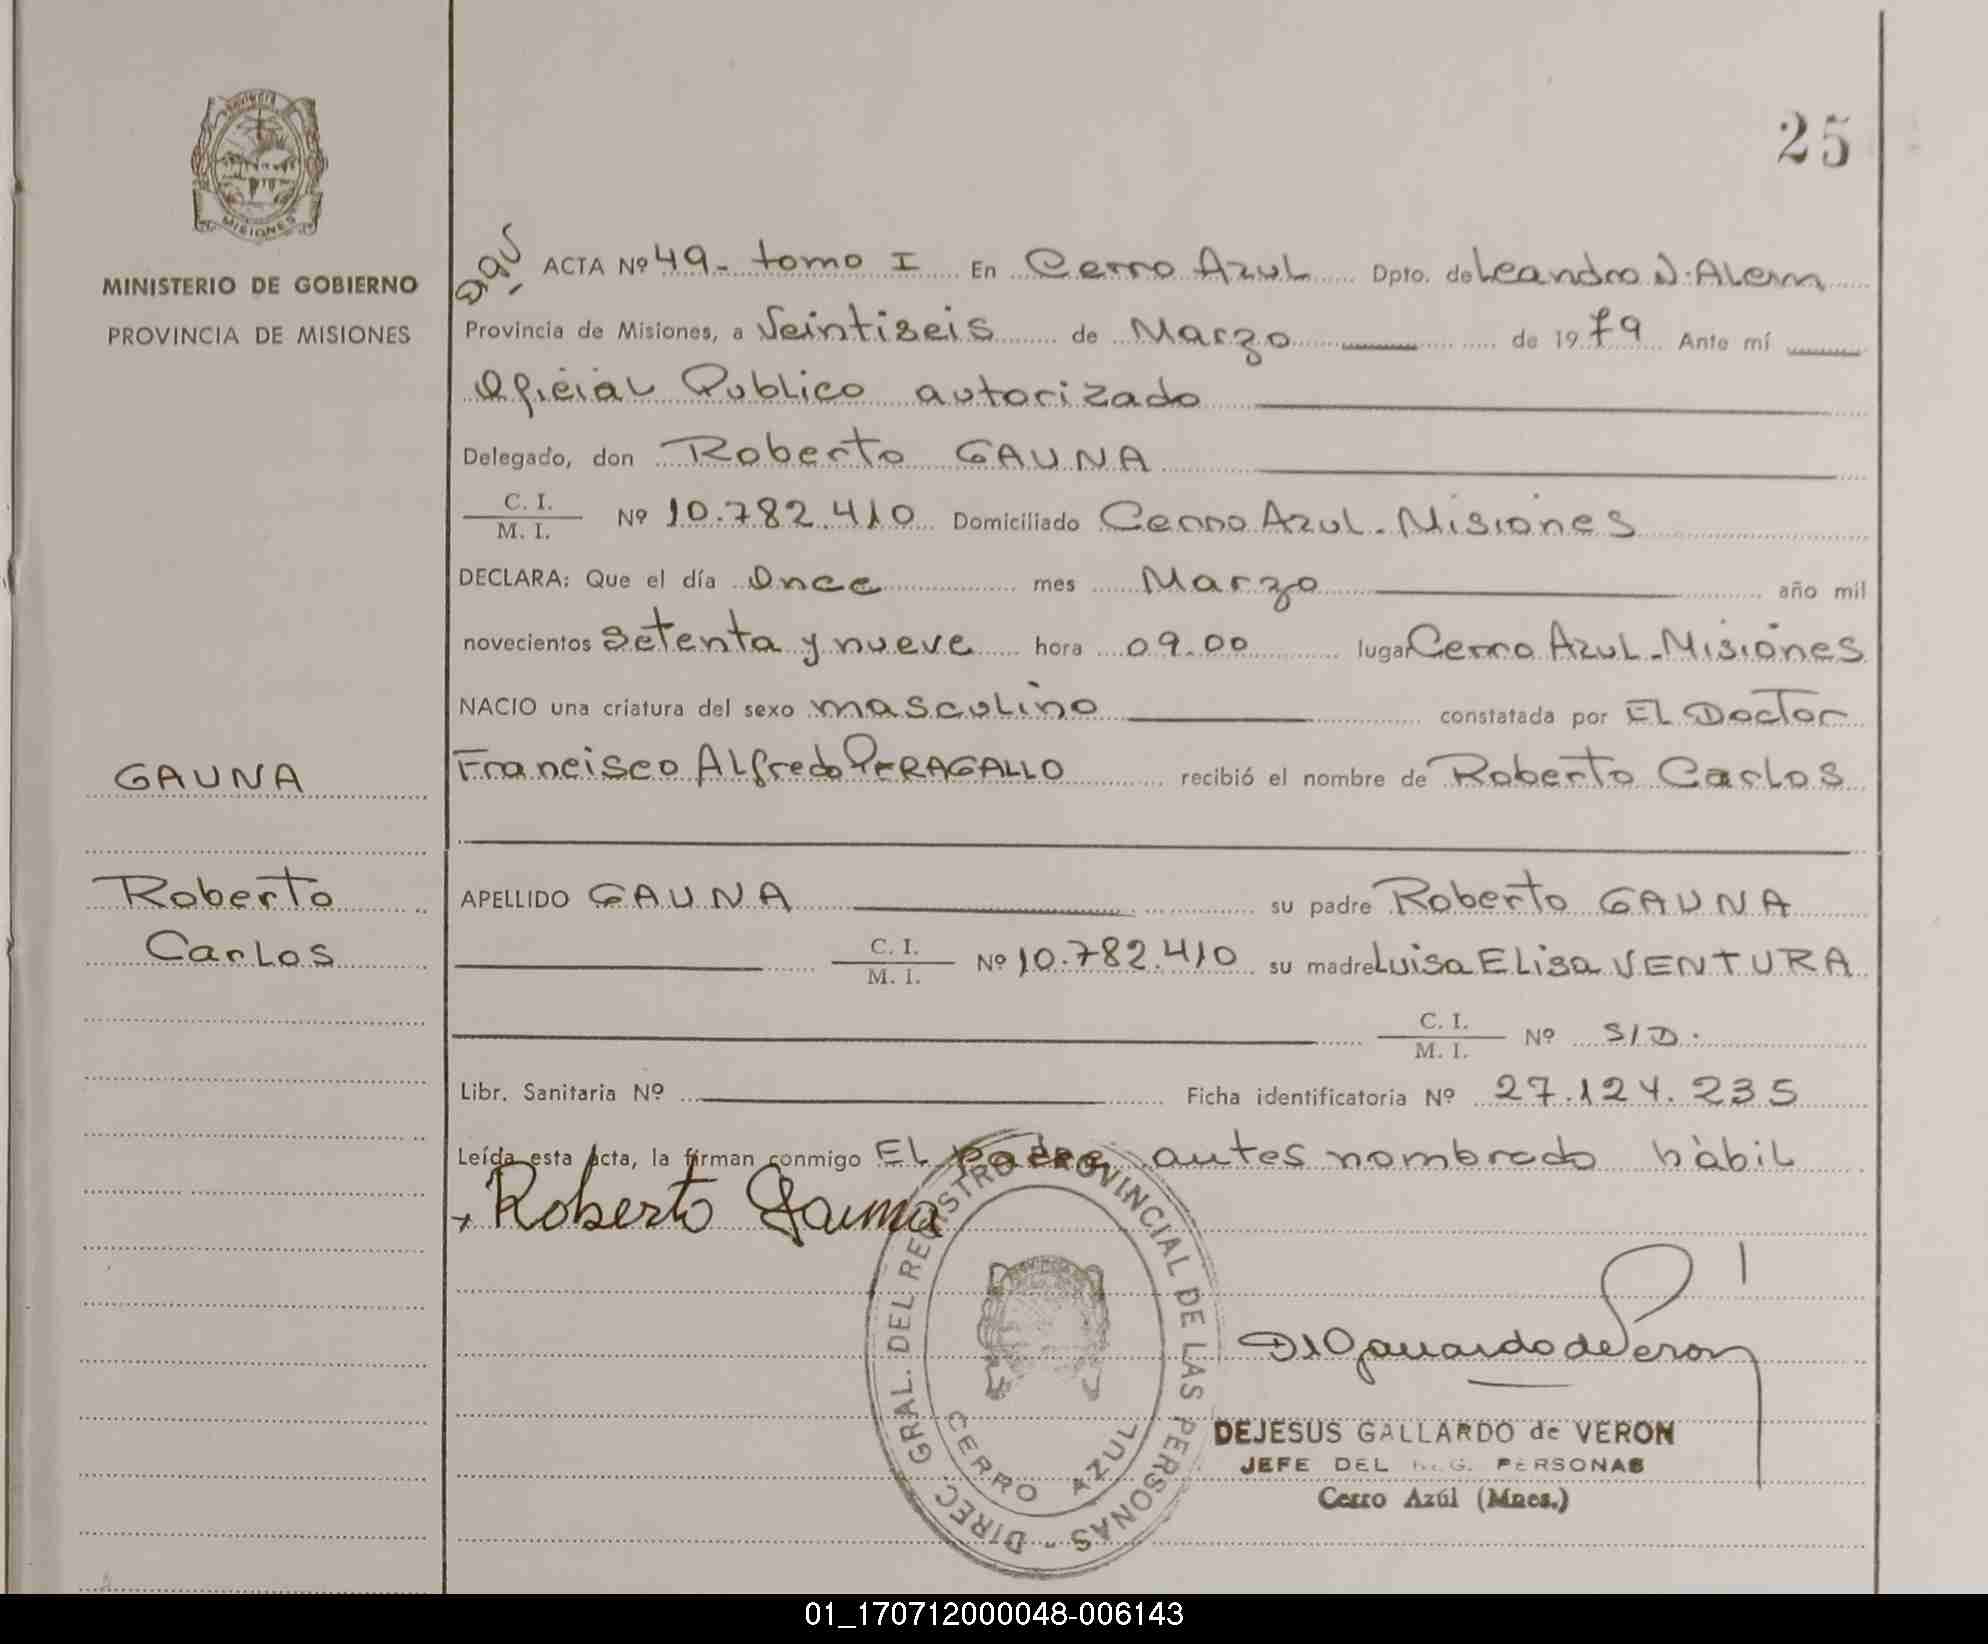 MISIONES
MINISTERIO DE GOBIERNO
PROVINCIA DE MISIONES
25
ACTA Nº 49- tomo I En Cerro Azul Dpto. de Leandro N. Alem
Provincia de Misiones, a Veintiseis de Marzo de 1979 Ante mí
Oficial Publico autorizado
Delegado, don Roberto GAUNA
C. I.
M. I. Nº 10.782.410 Domiciliado Cerro Azul - Misiones
DECLARA: Que el día Once mes Marzo año mil
novecientos setenta y nueve hora 09.00 lugar Cerro Azul - Misiones
NACIO una criatura del sexo masculino constatada por El Doctor
Francisco Alfredo PERAGALLO recibió el nombre de Roberto Carlos
GAUNA
Roberto
Carlos
APELLIDO GAUNA su padre Roberto GAUNA
C. I.
M. I. Nº 10.782.410 su madre Luisa Elisa VENTURA
C. I.
M. I. Nº S/D.
Libr. Sanitaria Nº Ficha identificatoria Nº 27.124.235
Leída esta acta, la firman conmigo El padre antes nombrado hàbil
Roberto Gauna
DIREC. GRAL. DEL REGISTRO PROVINCIAL DE LAS PERSONAS -
CERRO AZUL
DEJESUS GALLARDO de VERON
JEFE DEL REG. PERSONAS
Cerro Azúl (Mnes.)
01_170712000048-006143